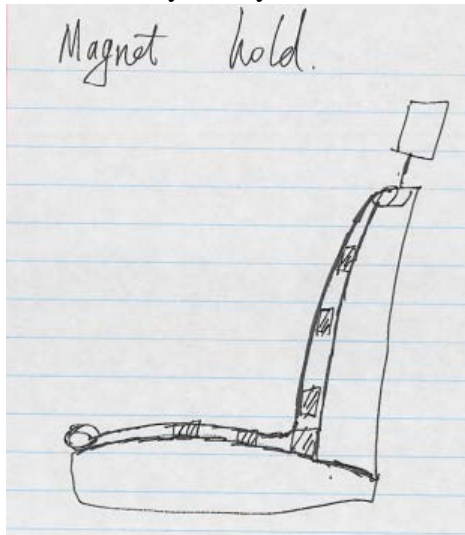 Magnet hold.